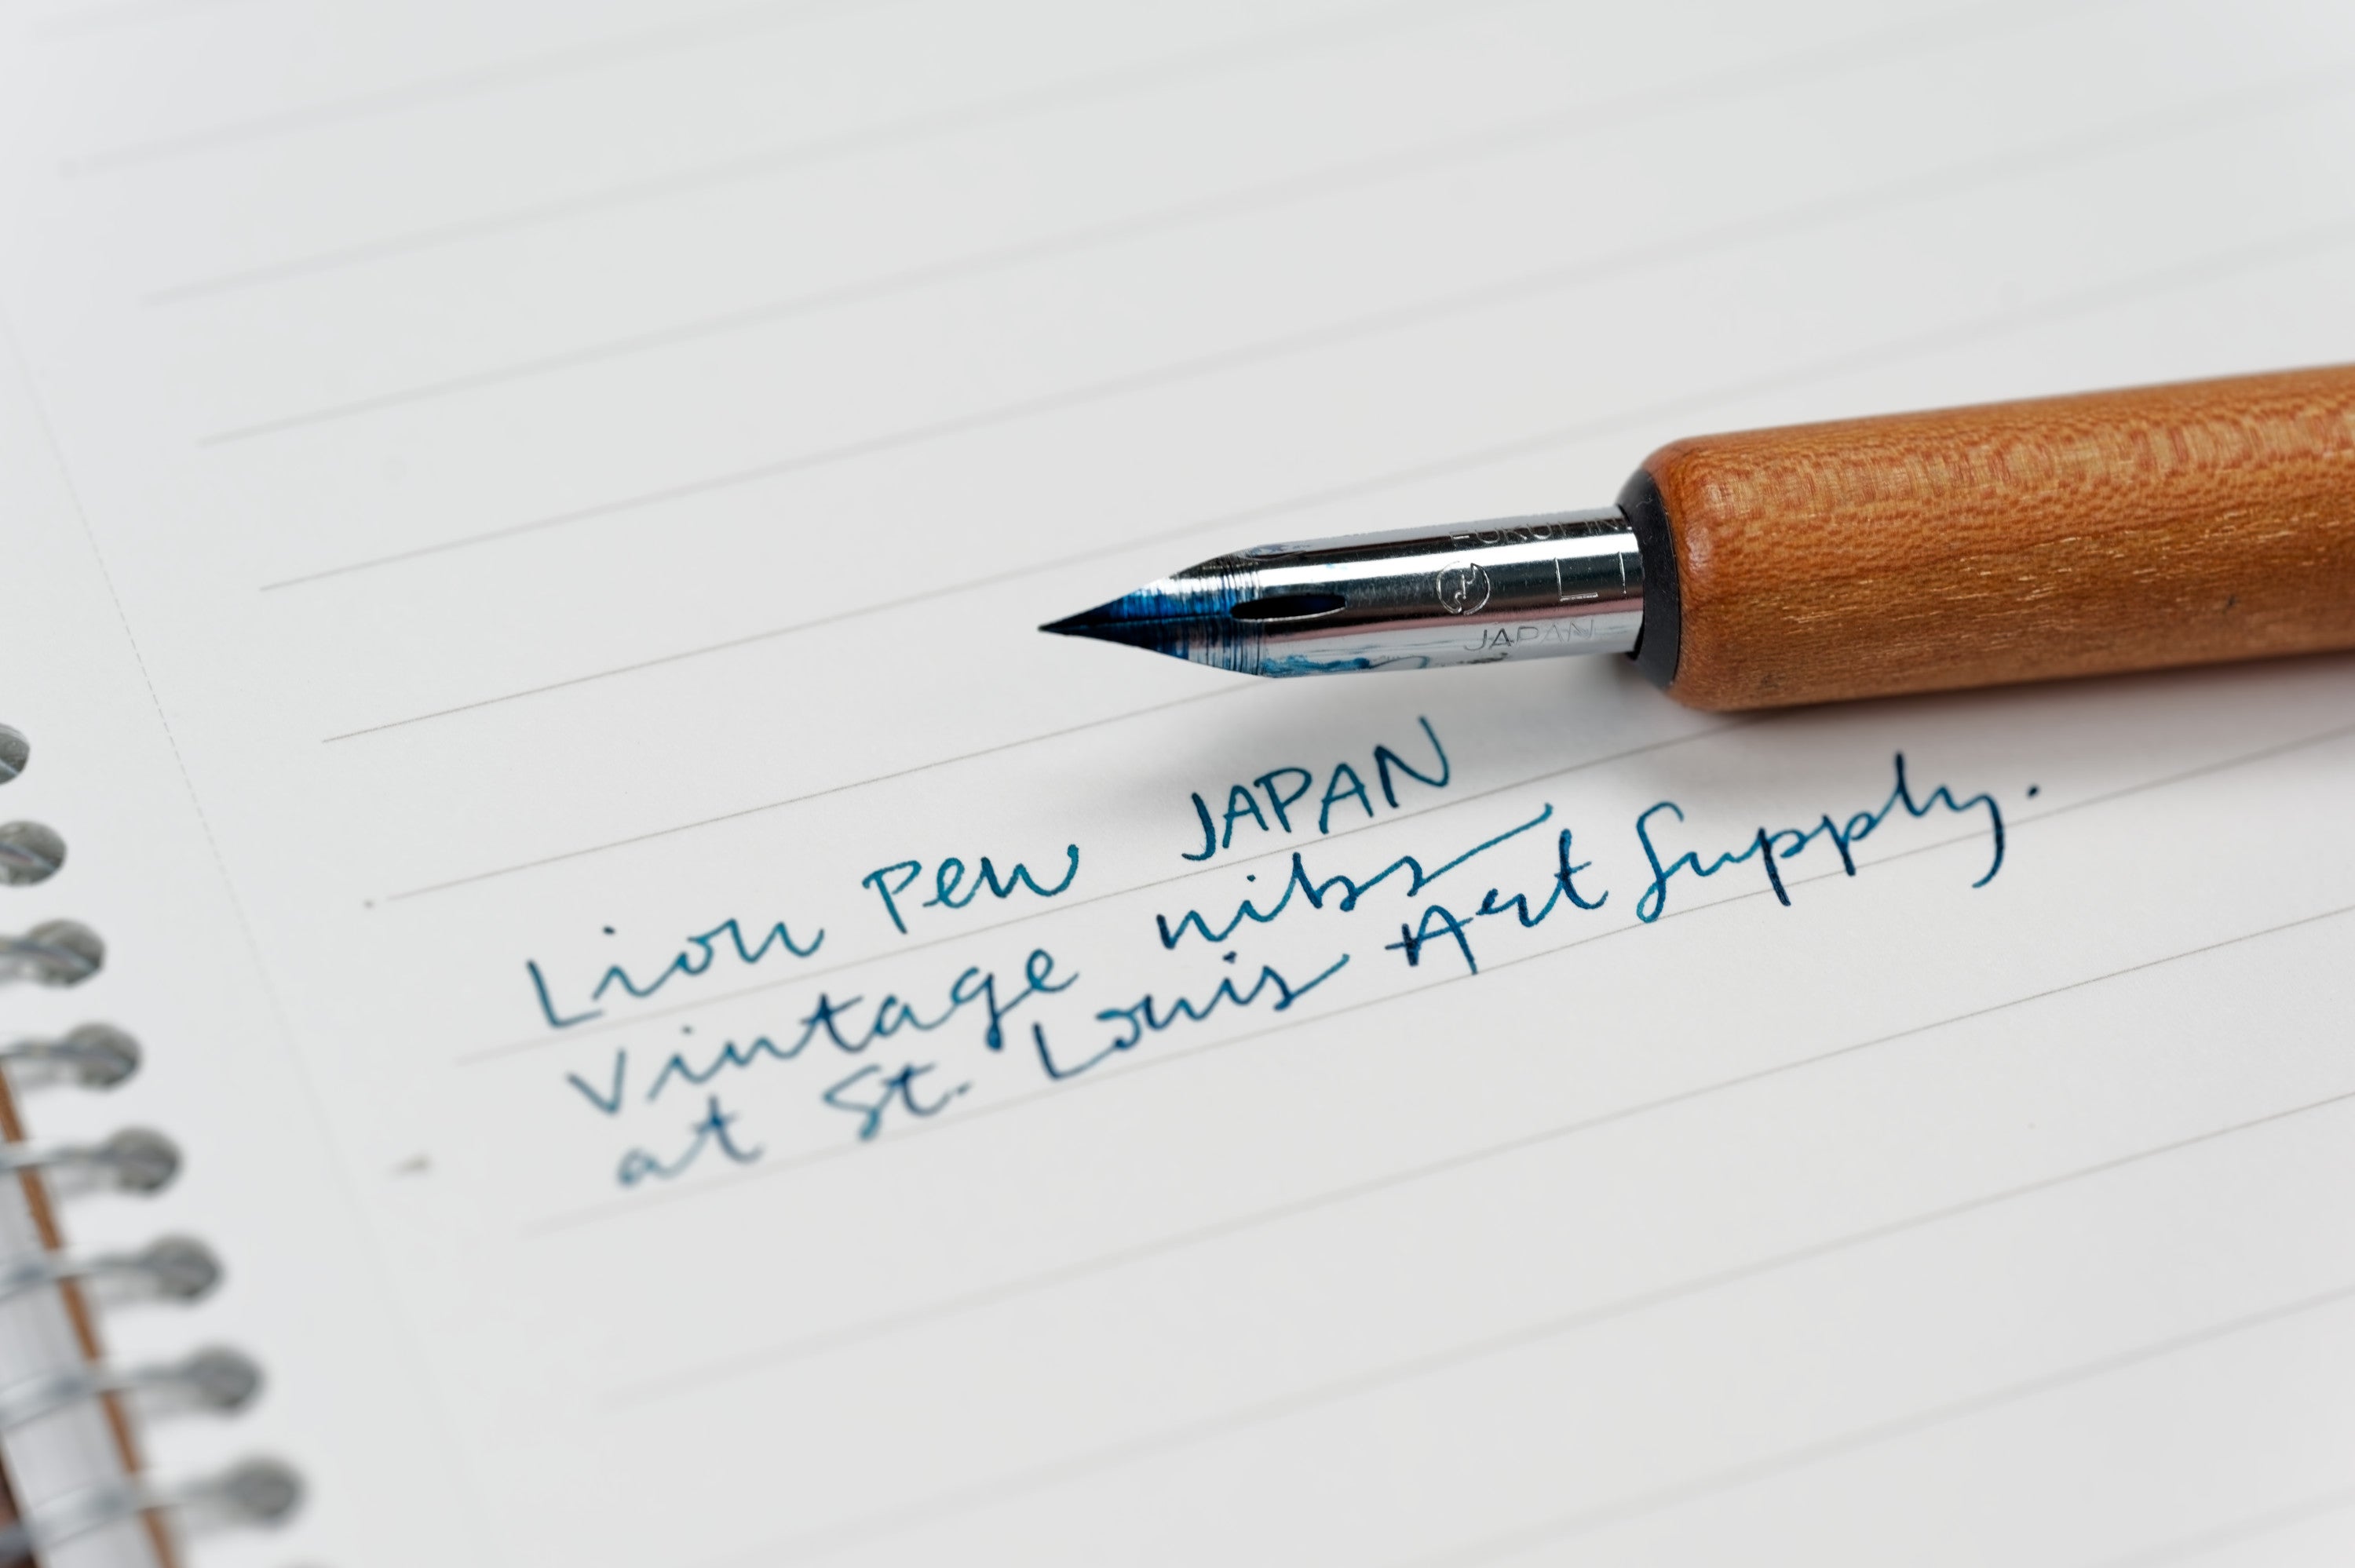 JAPAN
Lion Pen JAPAN
Vintage nibs
at St. Louis Art Supply.